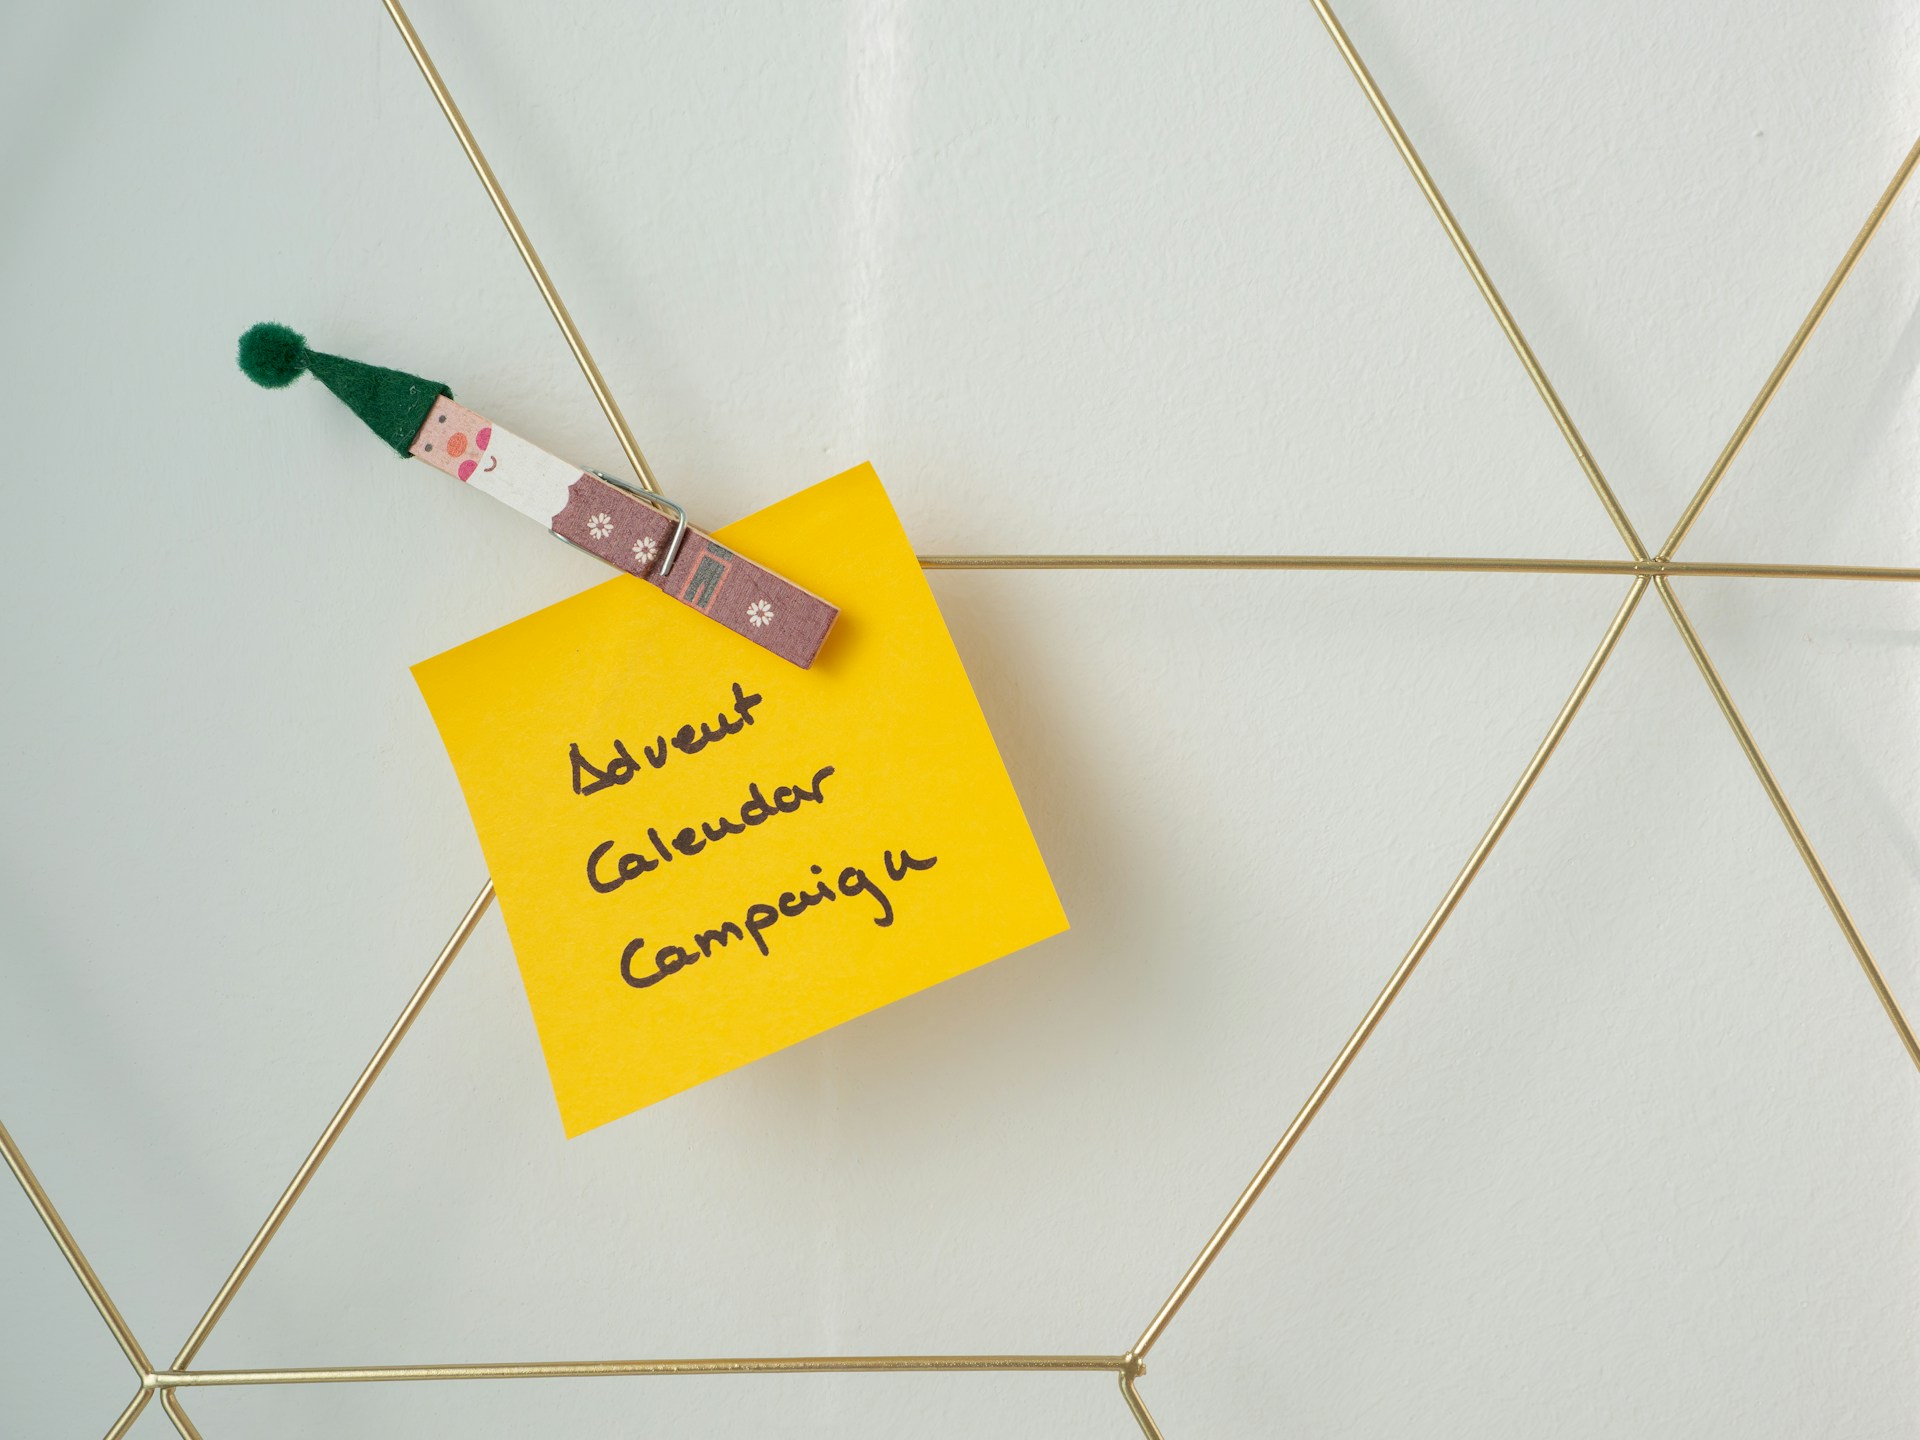 Advent
Calendar
Campaign